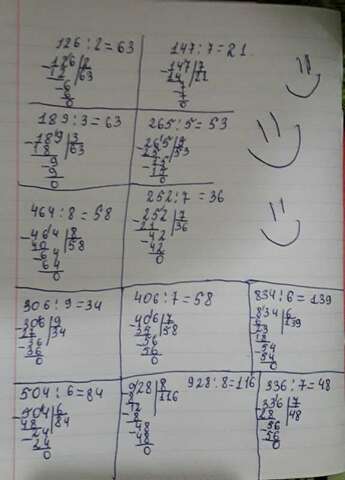 126:2=63
-126|2
12|63
-6
6
0
147:7=21
-147|7
14|21
-7
7
0
189:3=63
-189|3
18|63
-9
9
0
265:5=53
-265|5
25|53
-15
15
0
464:8=58
-464|8
40|58
-64
64
0
252:7=36
-252|7
21|36
-42
42
0
306:9=34
-306|9
27|34
-36
36
0
406:7=58
-406|7
35|58
-56
56
0
834:6=139
834|6
6|139
-23
18
-54
54
0
504:6=84
-504|6
48|84
-24
24
0
928:8=116
-928|8
8|116
-12
8
-48
48
0
336:7=48
-336|7
28|48
-56
56
0